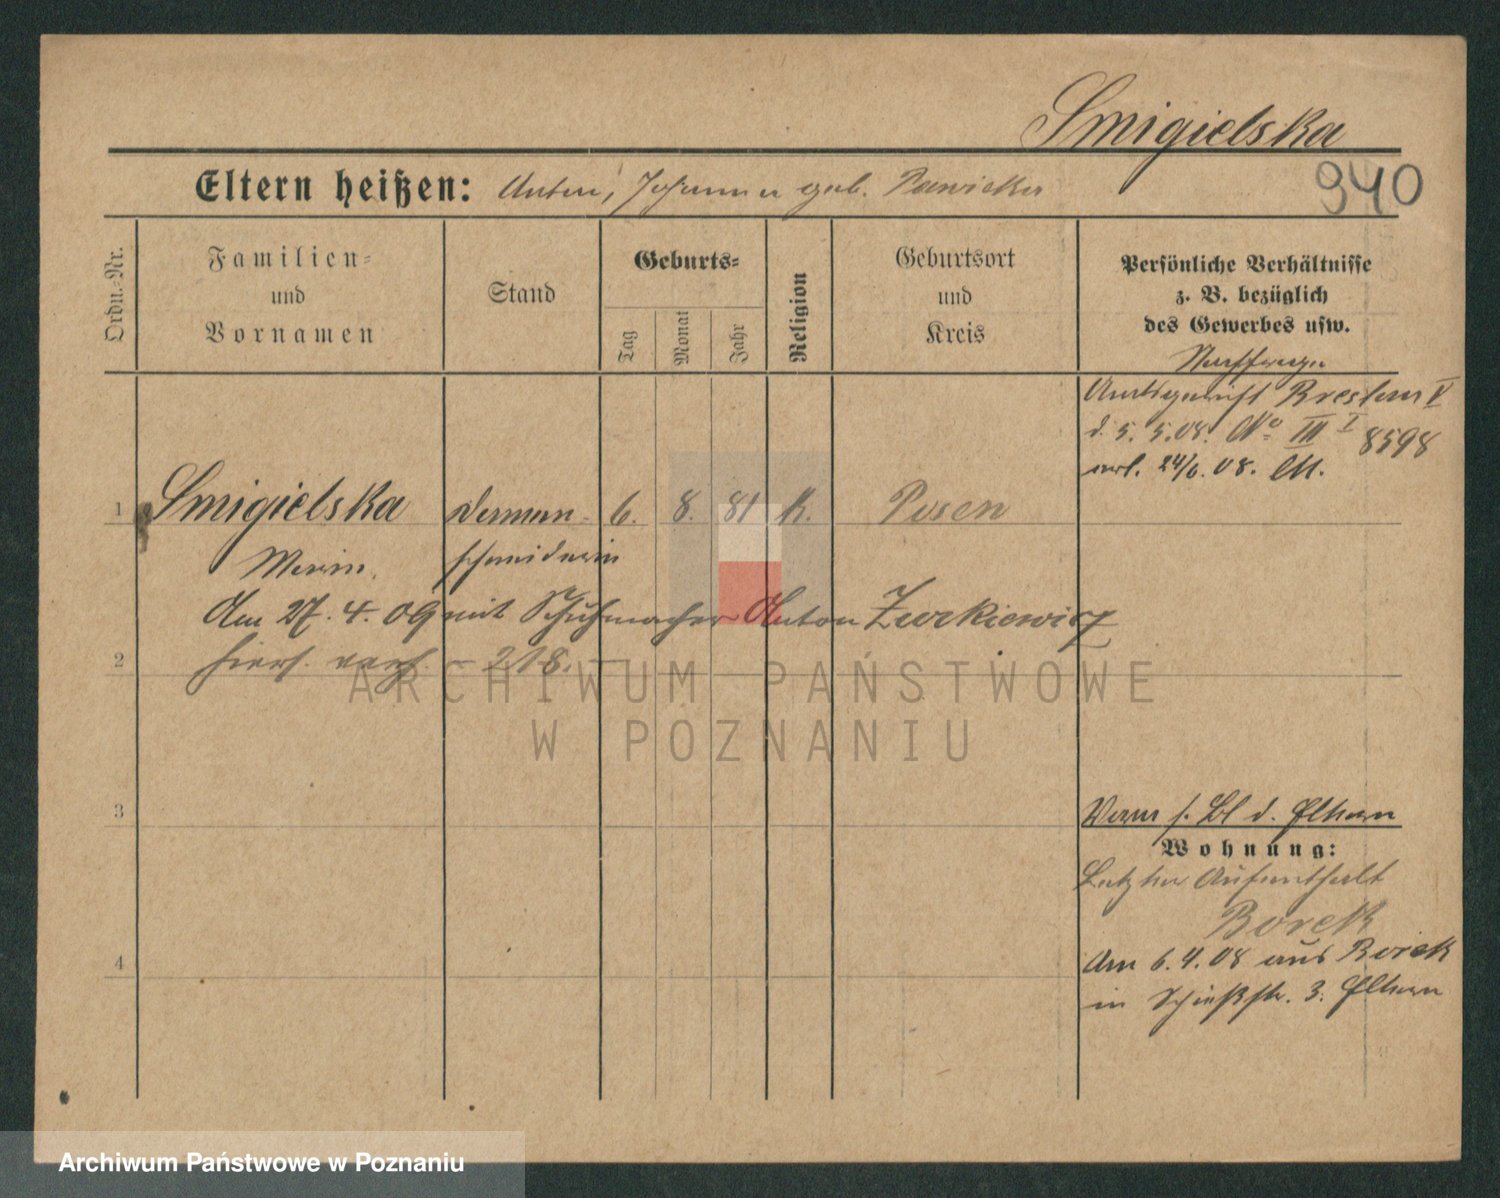 Smigielska
940
Eltern heißen: Anton, Johanna geb. Pawicka
Ordn.-Nr.
Familien-
und
Vornamen
Stand
Geburts-
Tag
Monat
Jahr
Religion
Geburtsort
und
Kreis
Persönliche Verhältnisse
z. B. bezüglich
des Gewerbes usw.
Nachfrage
Amtsgericht Breslau V
d. 5. 5.08. No III I 8598
erl. 24/6. 08.
1 Smigielska Damen- 6. 8. 81 k. Posen
Maria schneiderin
Am 27. 4. 09 mit Schuhmacher Anton Zurkiewicz
2 hiers. verh. - 218. -
3
s. Bl d. Eltern
Wohnung:
Letzter Aufenthalt
Borek
4
Am 6. 4. 08 aus Borek
in Schießstr. 3. Eltern
ARCHIWUM PAŃSTWOWE
W POZNANIU
Archiwum Państwowe w Poznaniu